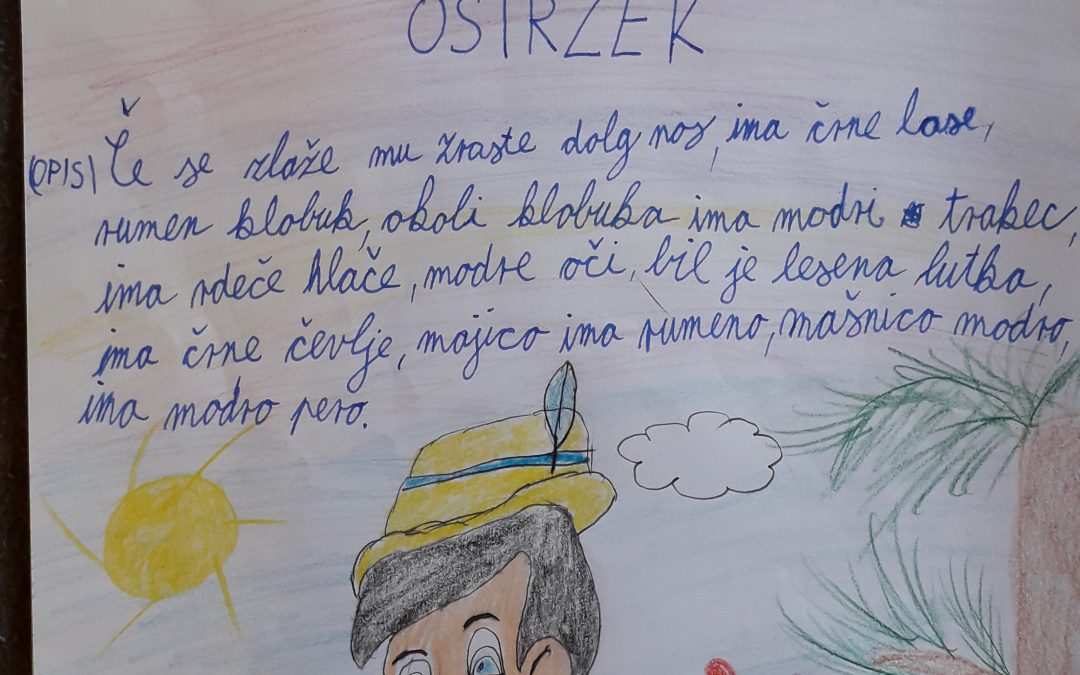 OSTRZEK
(OPIS) Če se zlaže mu zraste dolg nos, ima črne lase,
rumen klobuk, okoli klobuka ima modri trakec,
ima rdeče hlače, modre oči, bil je lesena lutka,
ima črne čevlje, majico ima rumeno, mašnico modro,
ima modro pero.